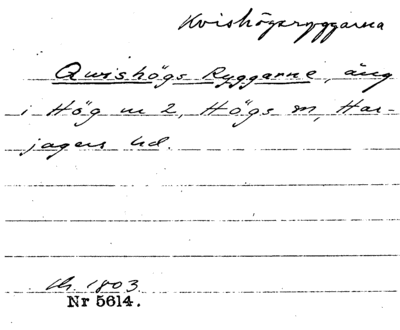 Kvishögsryggarna
Qwishögs Ryggarne, äng
i Hög nr 2, Högs sn, Har-
jagers hd.
1803
Nr 5614.